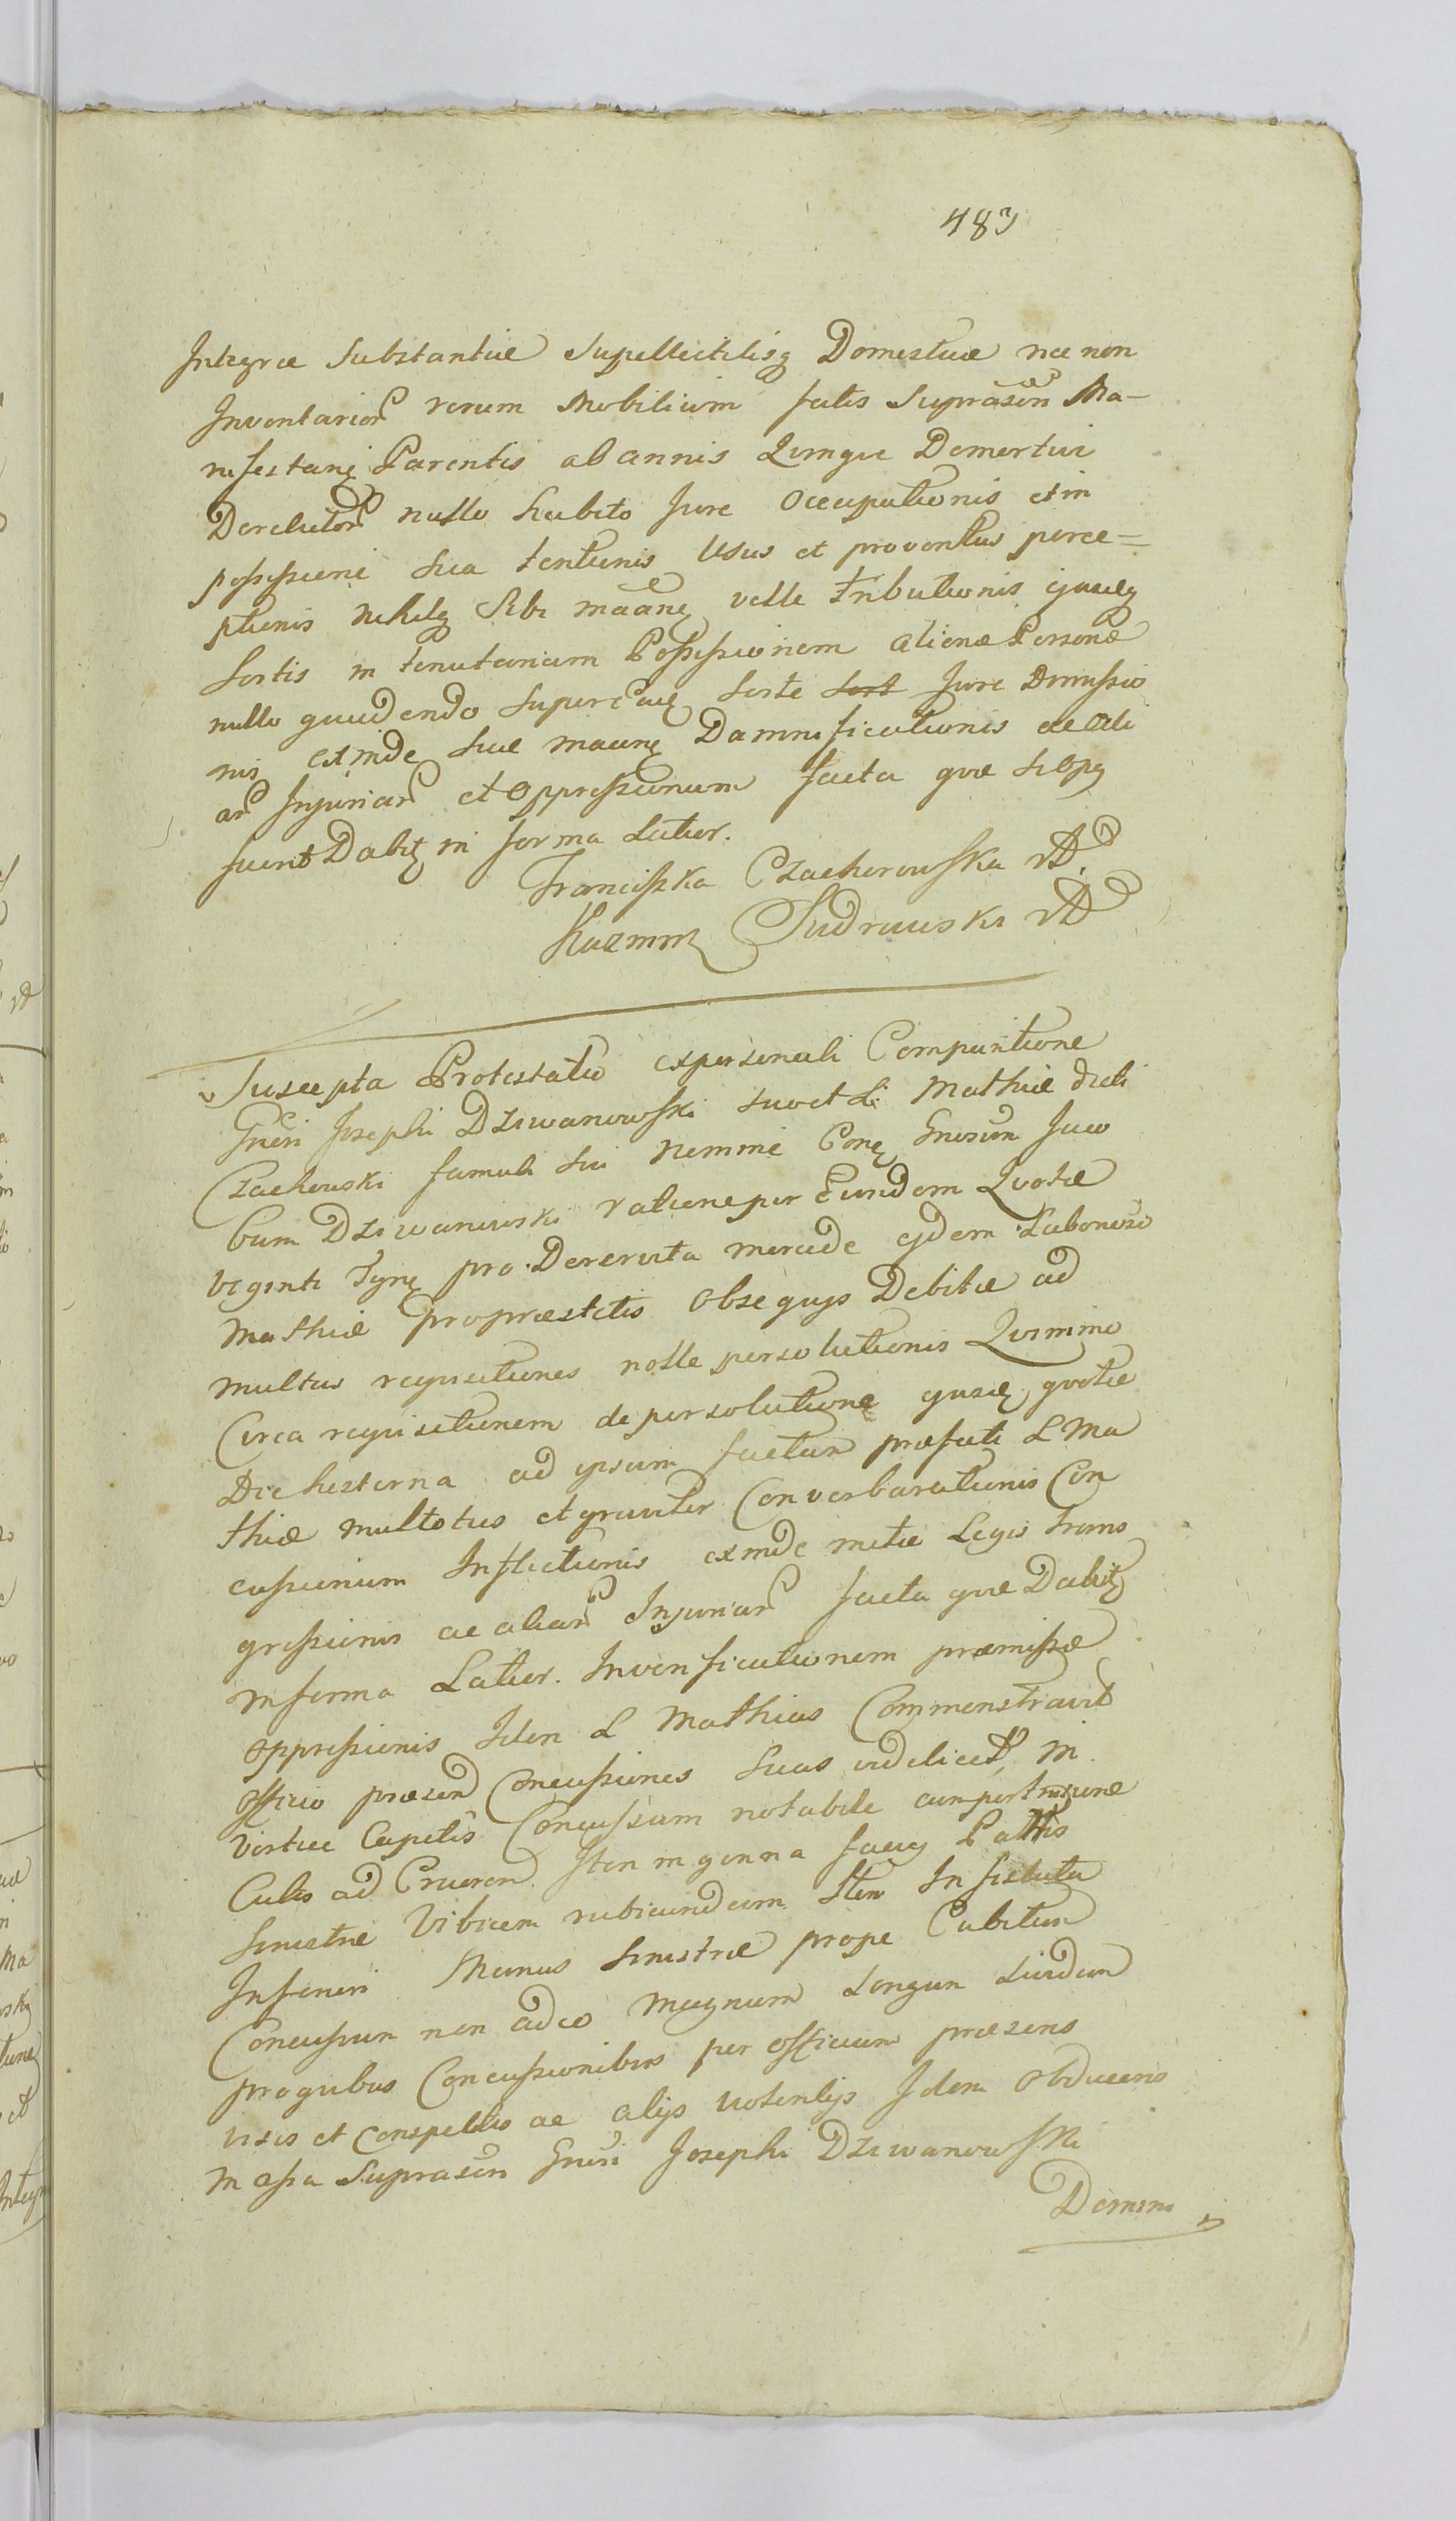 483
Integræ Substantiæ Supellectilisq Domesticæ nec non
Inventarior rerum Mobilium fatis Suprascri Ma-
nifestan Parentis ab annis Quinque Demortui
Derelictor nullo habito Jure occupationis et in
possessione sua tentionis Usus et proventus perce=
ptionis nihilq Sibi maane velle tributionis ejusdeq
Sortis in tenutariam Possessionem alienæ Personæ
nullo gaudendo super eaq sorte Jure Dimissio
nis exinde suæ maane Damnificationis ac ali
ar Injuriar et oppressionum facta quæ si opq
fuerit Dabit in forma Latior.
Franciszka Czachorowska
Kazimirz Sudrawski
Suscepta Protestatio ex personali Comparitione
Gnesi Josephi Dziwanowski suo et L Mathiæ dicti
Czachowski famuli sui Nomine Con Gnosum Jaco
bum Dziwanowski ratione per Eundem Quotæ
Viginti Tyn pro Deservita mercede ejdem Laborioso
Mathiæ pro præstitis obsequijs Debitæ ad
multas requisitiones nolle persolutionis Quinimo
Circa requisitionem de persolutione ejusd quotæ
Die hesterna ad ipsum factam præfati L Ma
thiæ multotius et graviter Converberationis Con
cussionum Inflictionis exinde metæ Legis trans
gressionis ac aliar Injuriar facta quæ Dabit
in forma Latior. In verificationem præmissæ
oppressionis Idem L Mathias Commonstravit
officio præsen Concussiones suas videlicet in
vertice Capitis Concussam notabile cum
Cutis ad Cruorem Item in genna faciej Partis
Sinistræ Vibicem rubicundam Item In
Inferiori Manus Sinistræ prope Cubitum
Concussum non adeo magnum longum lividum
pro quibus Concussionibus per officium præsens
visis et conspectis ac alijs violentijs Idem obducens
in assa Suprascri Gnesi Josephi Dziwanowski
Domini